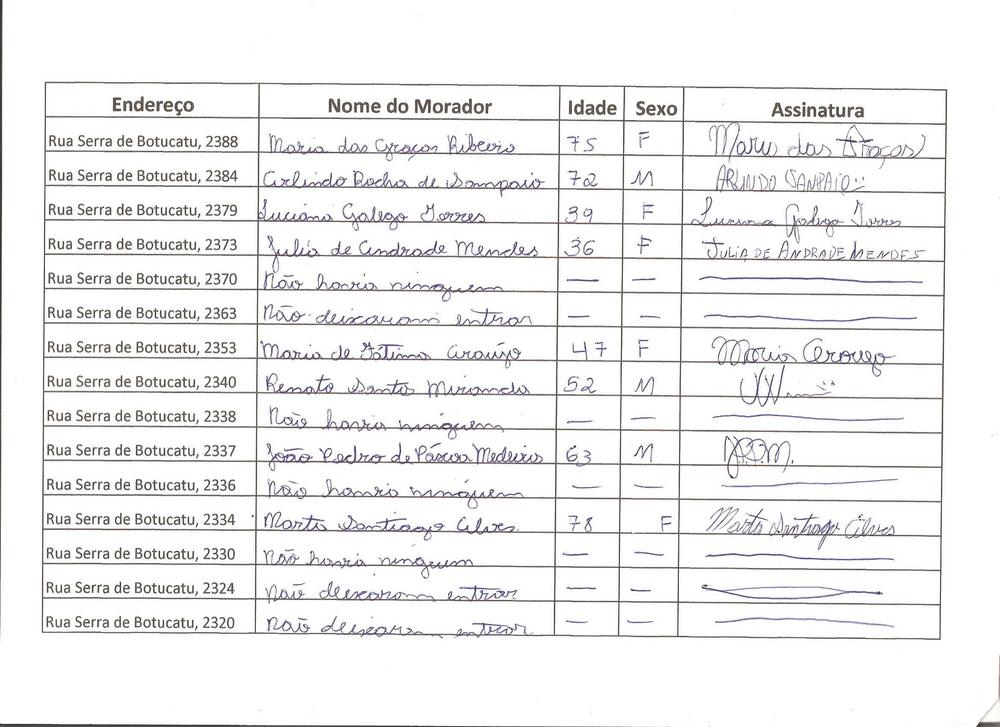 Endereço Nome do Morador Idade Sexo Assinatura
Rua Serra de Botucatu, 2388 Maria das Graças Ribeiro 75 F Maria das Graças
Rua Serra de Botucatu, 2384 Arlindo Rocha de Sampaio 72 M ARLINDO SANPAIO
Rua Serra de Botucatu, 2379 Luciana Galego Torres 39 F Luciana Galego Torres
Rua Serra de Botucatu, 2373 Julia de Andrade Mendes 36 F JULIA DE ANDRADE MENDES
Rua Serra de Botucatu, 2370 Não havia ninguem — —
Rua Serra de Botucatu, 2363 Não deixaram entrar — —
Rua Serra de Botucatu, 2353 Maria de Fátima Araújo 47 F Maria Araujo
Rua Serra de Botucatu, 2340 Renato Santos Miranda 52 M
Rua Serra de Botucatu, 2338 Não havia ninguém — —
Rua Serra de Botucatu, 2337 João Pedro de Páscoa Medeiros 63 M J.P.M.
Rua Serra de Botucatu, 2336 Não havia ninguém — —
Rua Serra de Botucatu, 2334 Marta Santiago Alves 78 F Marta Santiago Alves
Rua Serra de Botucatu, 2330 Não havia ninguem — —
Rua Serra de Botucatu, 2324 Não deixaram entrar — —
Rua Serra de Botucatu, 2320 Não deixaram entrar — —